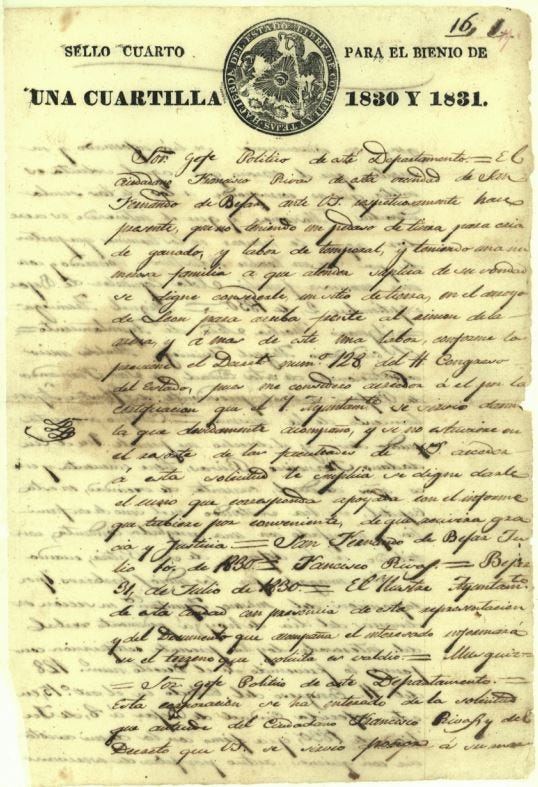 16 1
SELLO CUARTO PARA EL BIENIO DE
UNA CUARTILLA 1830 Y 1831.
HACIENDA DEL ESTADO LIBRE DE COAHUILA Y TEJAS
Sor. Gefe Politico de este Departamento. = El
Ciudadano Francisco Rivas de esta vecindad de San
Fernando de Bejar ante VS. respetuosamente hace
presente, que no teniendo un pedaso de tierra para cria
de ganado, y labor de temporal, y teniendo una nu
merosa familia a que atender suplica de su bondad
se digne concederle, un sitio de tierra, en el arroyo
de Leon para arriba frente al
y á mas de este una labor, conforme lo
previene el Decreto num.o 128 del H Congreso
del Estado, pues me considero acreedor á el por la
certificacion que el Y. Ayuntamto. se sirvio darme
la que devidamente acompaño, y si no estuviese en
el de las facultades de VS acceder
á esta solicitud le suplica se digne darle
el curso que corresponda apoyada con el informe
que tubiere por conveniente, de que recivera gra
cia y Justicia = San Fernando de Bejar Ju
lio 16, de 1830 = Francisco Rivas = Bejar
31, de Julio de 1830. = El Ylustre Ayuntamto.
de esta ciudad con presencia de esta representacion
y del Documento que acompaña el interesado informará
si el terreno que solicita es valdio. = Musquiz =
= Sor. Gefe Politico de este Departamento. =
Esta corporacion se ha enterado de la solicitud
que antecede del Ciudadano Francisco Rivas, y del
Decreto que VS. se sirvio á su mar